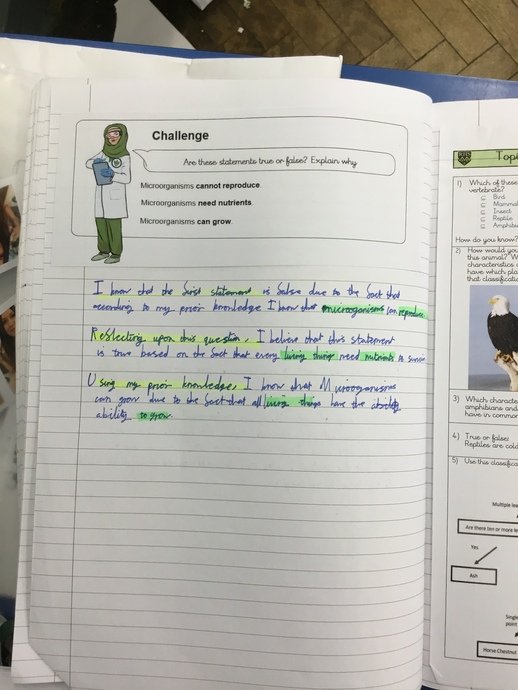 Challenge
Are these statements true or false? Explain why
Microorganisms cannot reproduce.
Microorganisms need nutrients.
Microorganisms can grow.
I know that the first statement is false due to the fact that
according to my prior knowledge I know that microorganisms can reproduce
Reflecting upon this question, I believe that this statement
is true based on the fact that every living things need nutrients to survive
Using my prior knowledge, I know that Microorganisms
can grow due to the fact that all living things have the ability
ability to grow.
Topi
1) Which of these
vertebrate?
Bird
Mammal
Insect
Reptile
Amphibi
How do you know?
2) How would you
this animal? W
characteristics
have which pla
that classificati
3) Which characte
amphibians and
have in common
4) True or false:
Reptiles are cold
5) Use this classifica
Multiple lea
Are there ten or more le
Yes
Ash
Single
point
Horse Chestnut